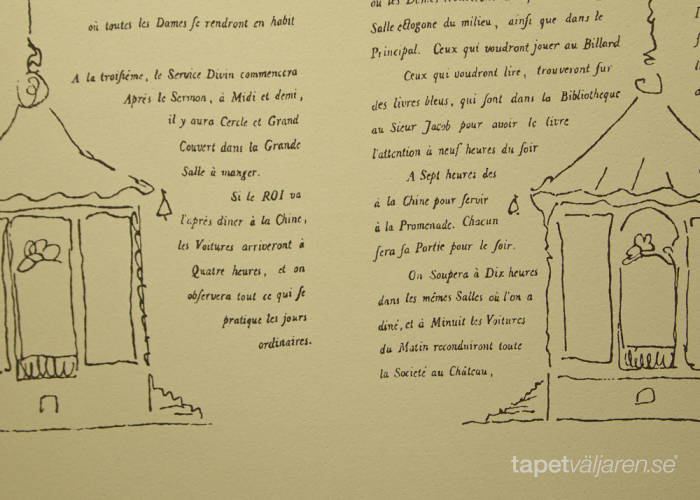 où toutes les Dames se rendront en habit
A la troisiéme, le Service Divin commencera
Après le Sermon, à Midi et demi,
il y aura Cercle et Grand
Couvert dans la Grande
Salle à manger.
Si le ROI va
l'après dîner à la Chine,
les Voitures arriveront à
Quatre heures, et on
observera tout ce qui se
pratique les jours
ordinaires.
Salle octogone du milieu, ainsi que dans le
Principal. Ceux qui voudront jouer au Billard
Ceux qui voudront lire, trouveront sur
des livres bleus, qui sont dans la Bibliotheque
au Sieur Jacob pour avoir le livre
l'attention à neuf heures du soir
A Sept heures des
à la Chine pour servir
à la Promenade. Chacun
sera sa Partie pour le soir.
On Soupera à Dix heures
dans les mêmes Salles où l'on a
diné, et à Minuit les Voitures
du Matin reconduiront toute
la Societé au Château,
tapetväljaren.se